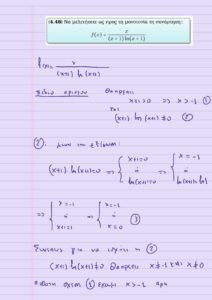 (4.48) Να μελετήσετε ως προς τη μονοτονία τη συνάρτηση:
f(x) = x / ((x+1) ln(x+1))
f(x) = x / ((x+1) ln(x+1))
Πεδίο ορισμού Θα πρέπει
x+1 > 0 => x > -1 ①
και
(x+1) ln(x+1) ≠ 0 ②
②: την εξίσωση:
(x+1) ln(x+1) = 0 => { x+1 = 0 ή ln(x+1) = 0 => { x = -1 ή
=> { x = -1 ή => { x = -1 ή x = 0 ③
Συνεπώς για να ισχύει η ②
(x+1) ln(x+1) ≠ 0 Θα πρέπει x ≠ -1 και x ≠ 0
σχέση ① έχουμε x > -1 άρα